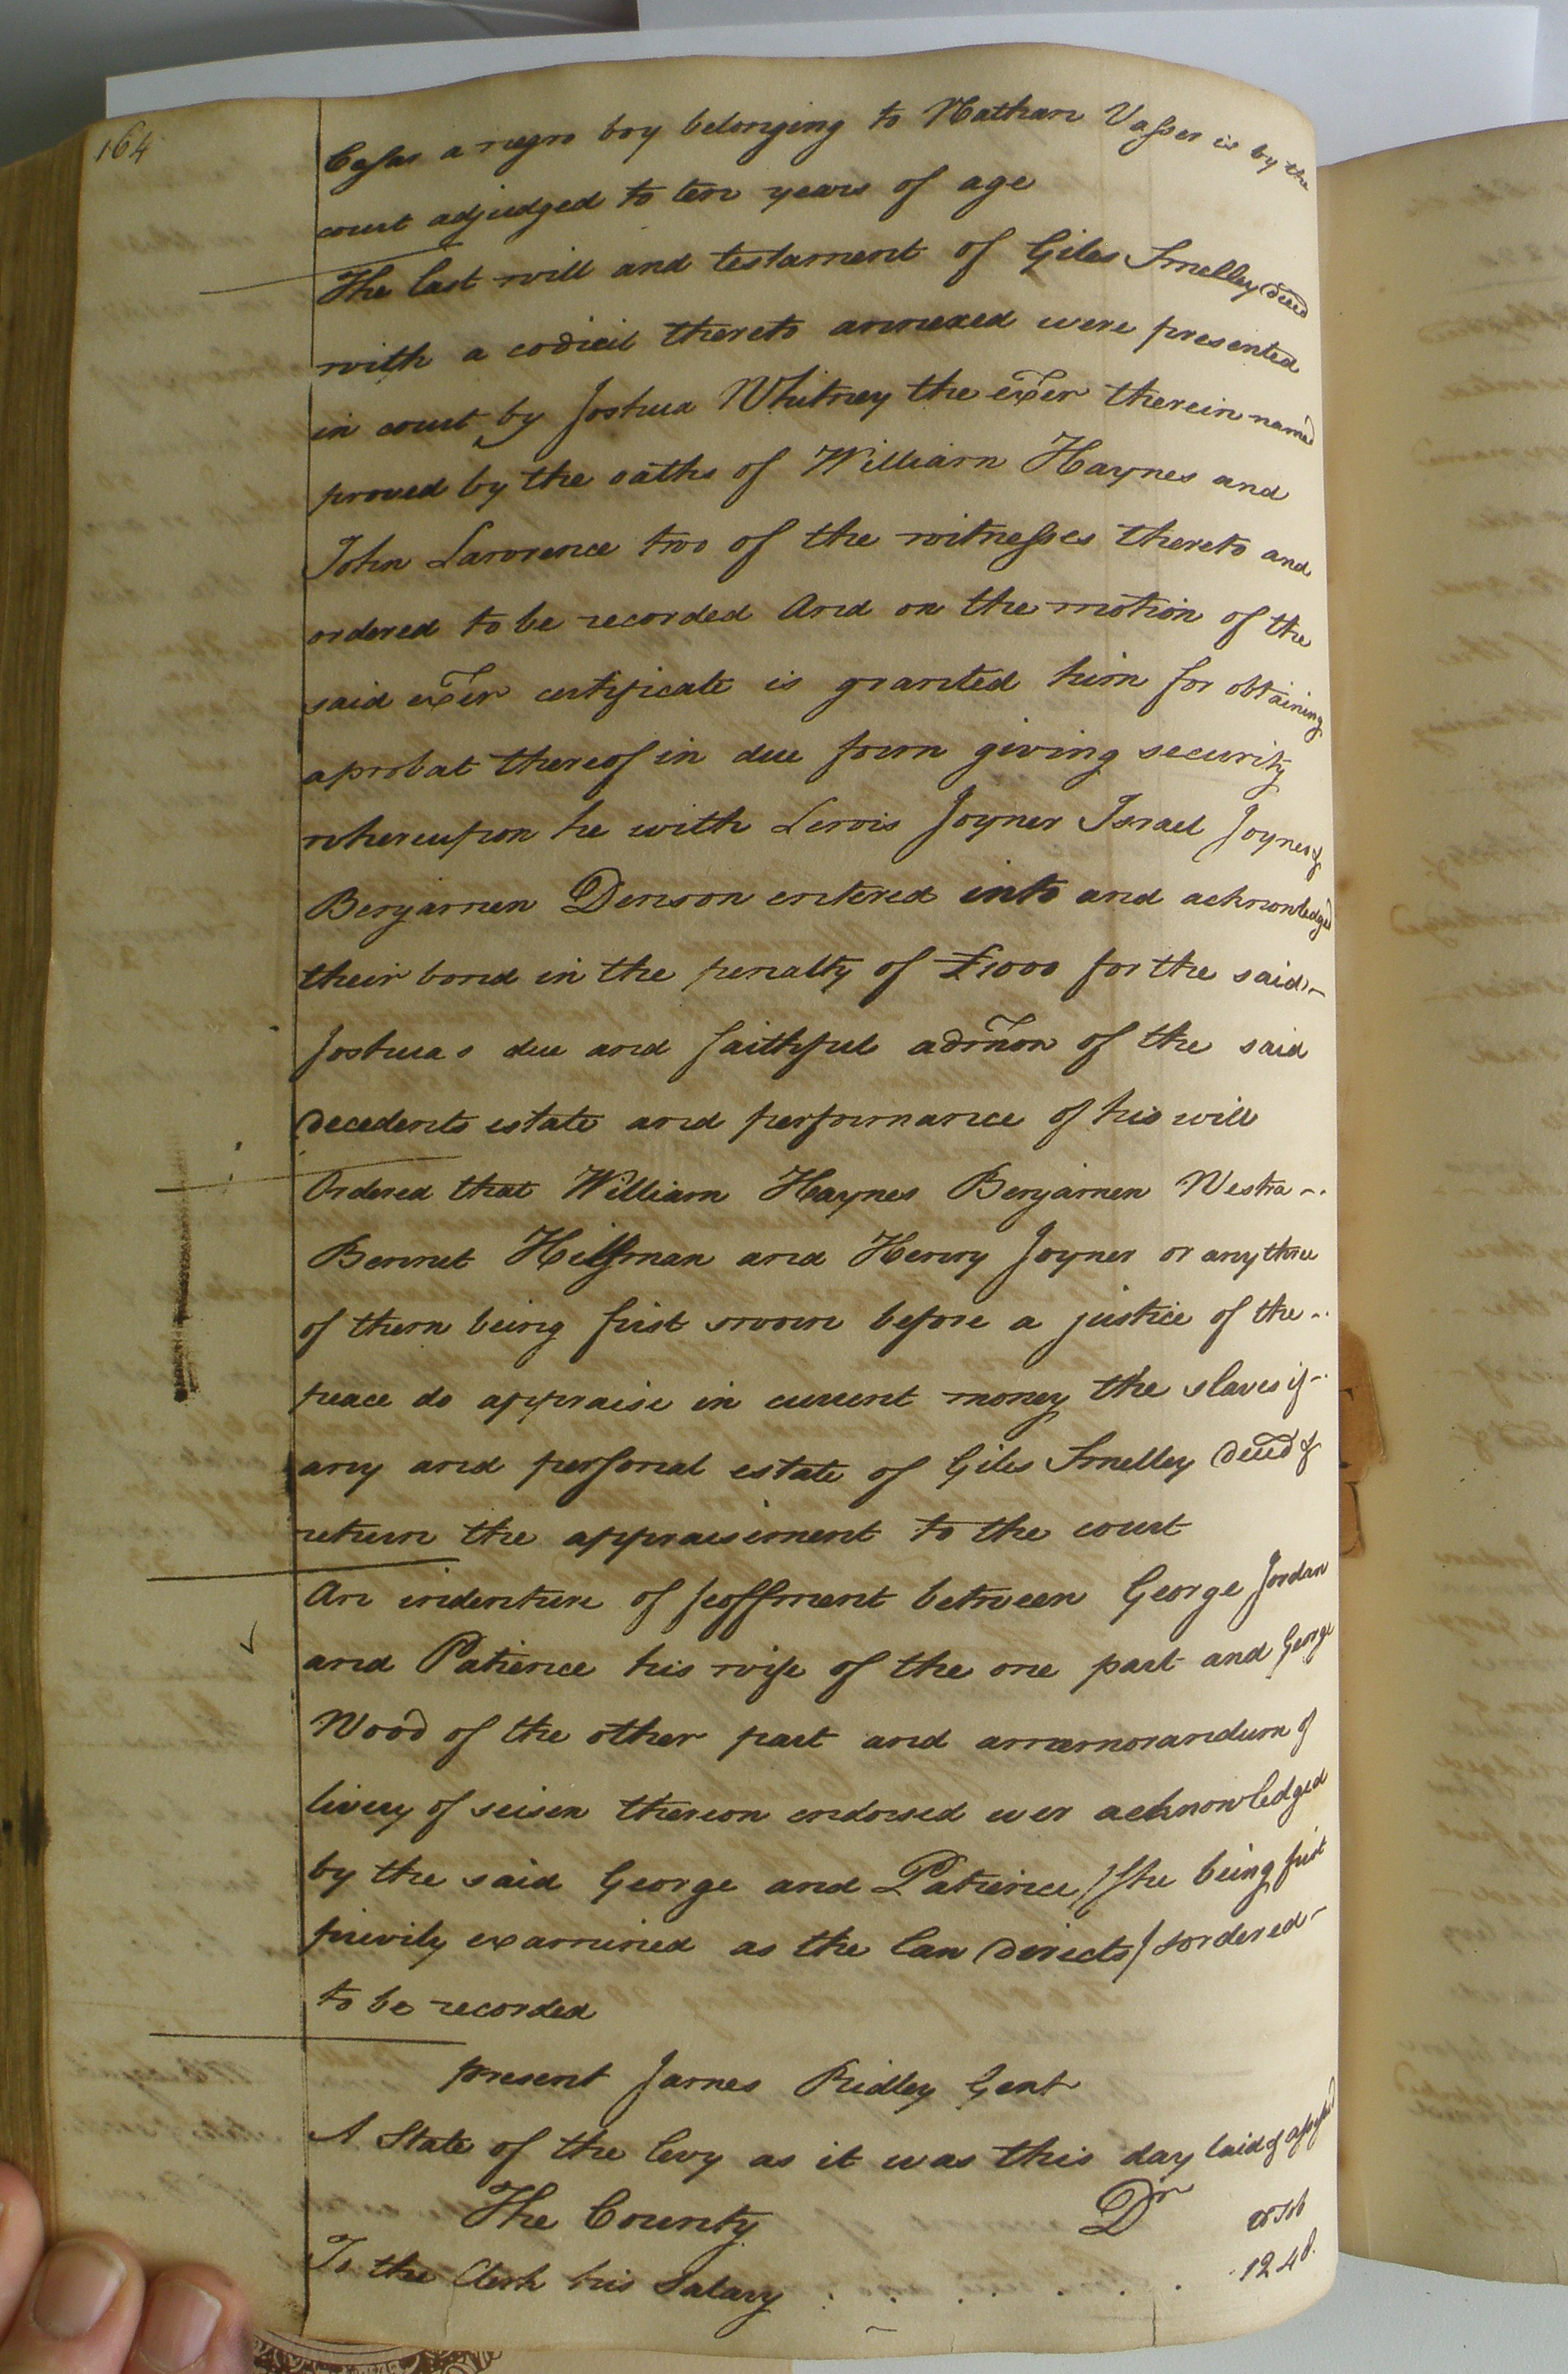 164
Cesar a negro boy belonging to Nathan Vasser is by the
court adjudged to ten years of age
The last will and testament of Giles Smelley decd
with a codicil thereto annexed were presented
in court by Joshua Whitney the exer therein named
proved by the oaths of William Haynes and
John Lawrence two of the witnesses thereto and
ordered to be recorded And on the motion of the
said exer certificate is granted him for obtaining
a probat thereof in due form giving security
whereupon he with Lewis Joyner Israel Joyner &
Benjamen Denson entered into and acknowledged
their bond in the penalty of £1000 for the said
Joshuas due and faithful admon of the said
decedents estate and performance of his will
Ordered that William Haynes Benjamen Westra
Bennet Hillsman and Henry Joyner or any three
of them being first sworn before a justice of the
peace do appraise in current money the slaves if
any and personal estate of Giles Smelley decd &
return the appraisement to the court
An indenture of feoffment between George Jordan
and Patience his wife of the one part and George
Wood of the other part and a memorandum of
livery of seisen thereon endorsed wer acknowledged
by the said George and Patience /she being first
privily examined as the law directs/ & ordered
to be recorded
present James Ridley Gent
A State of the levy as it was this day laid & assessed
The County Dr
To the Clerk his Salary . . . . . 1248